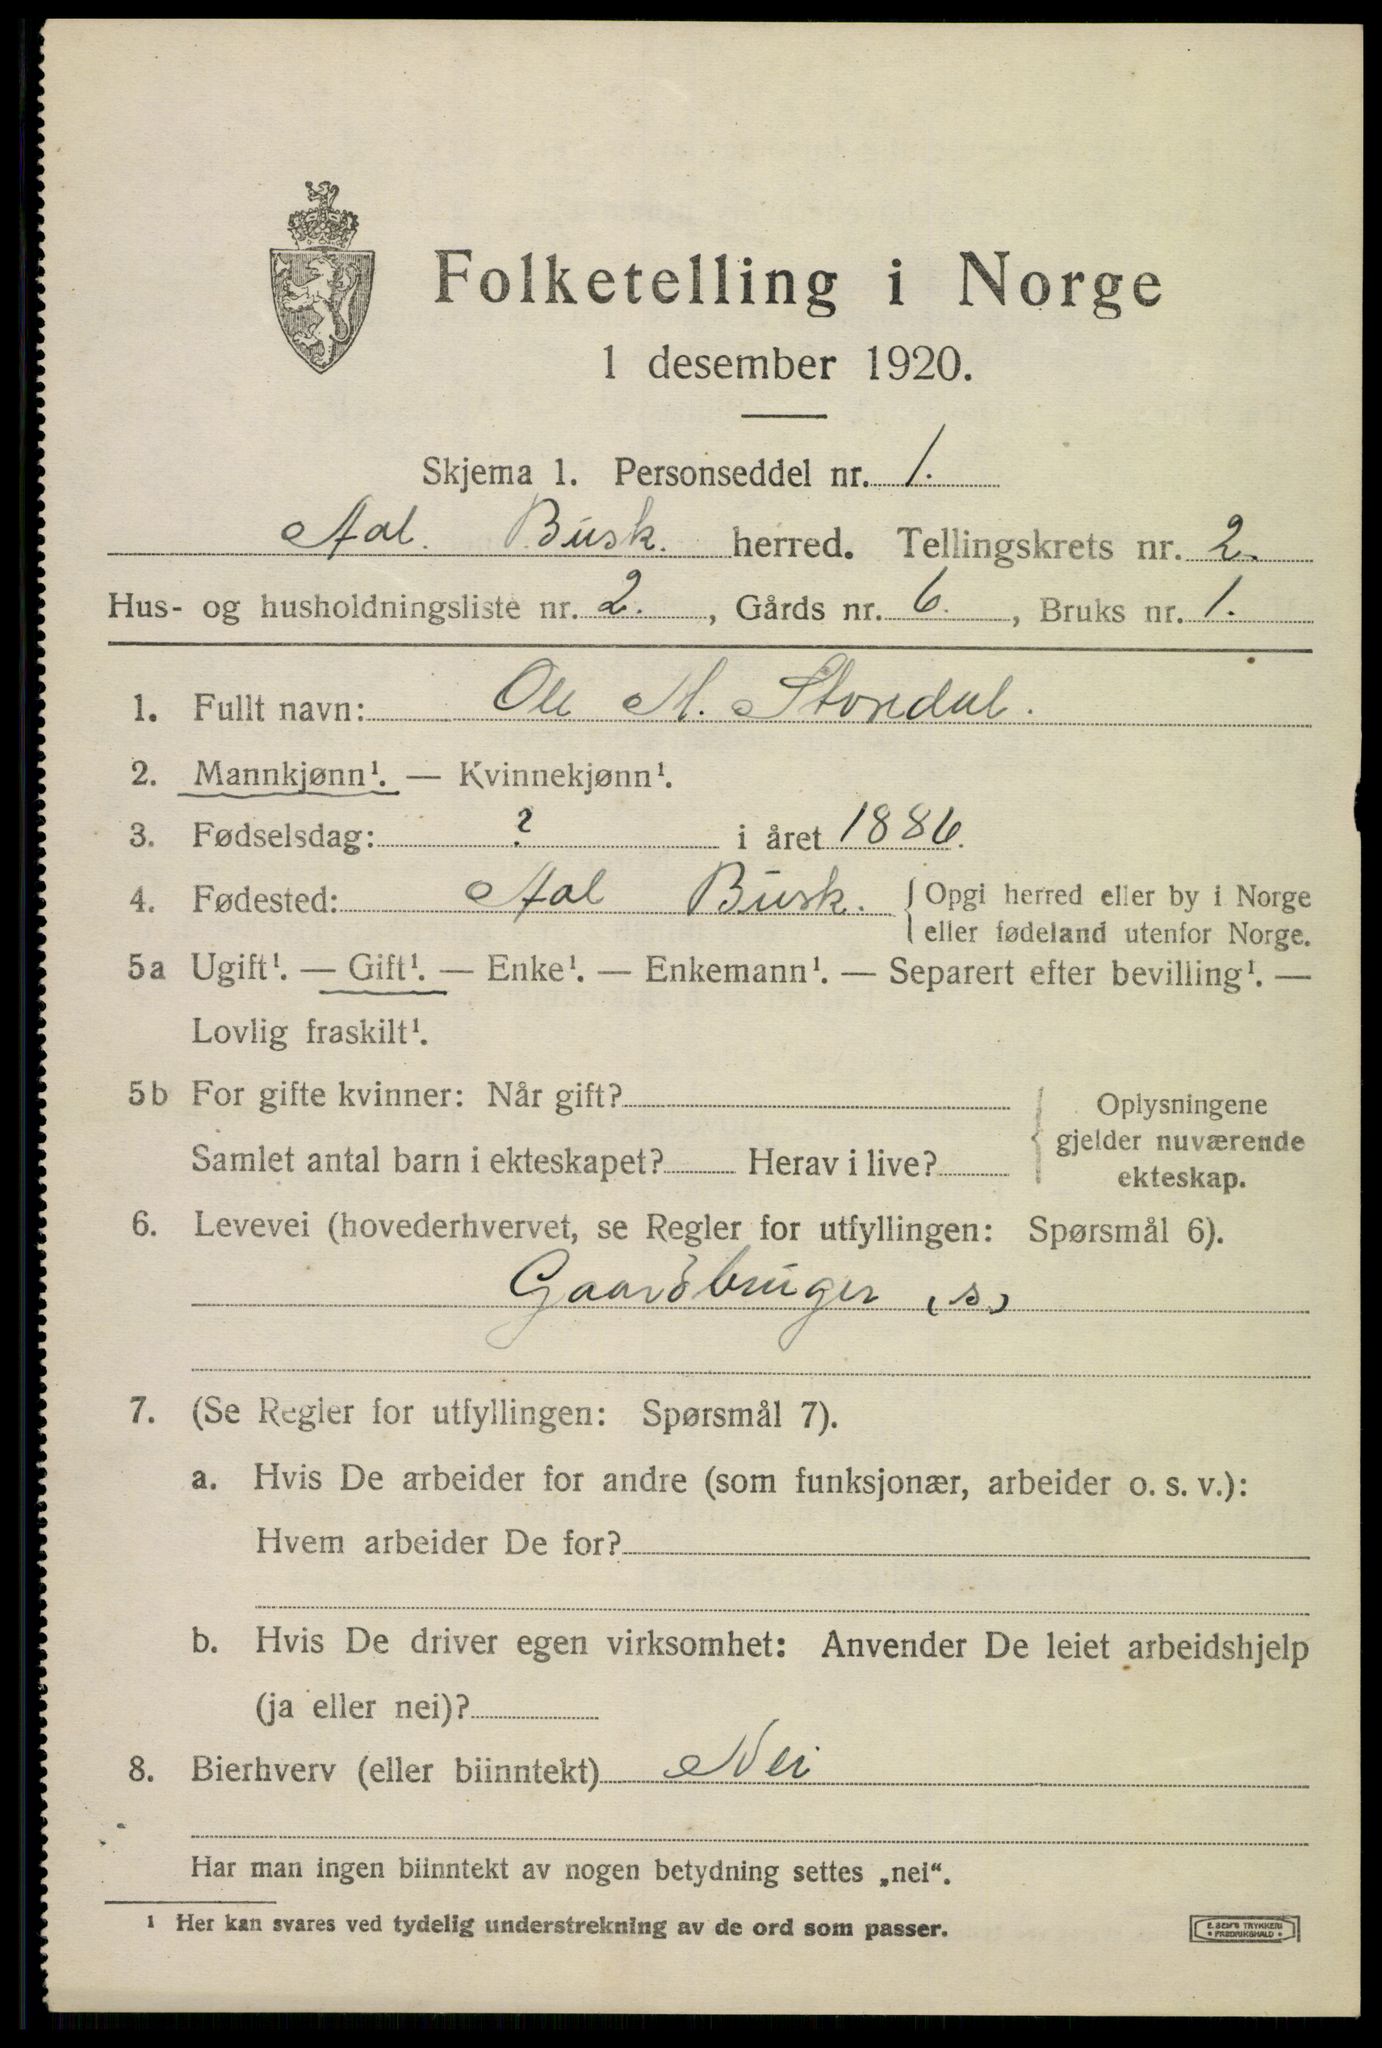 Folketelling i Norge
1 desember 1920.
Skjema 1. Personseddel nr. 1.
Aal. Busk. herred. Tellingskrets nr. 2.
Hus- og husholdningsliste nr. 2., Gårds nr. 6., Bruks nr. 1.
1. Fullt navn: Ole M. Storedal.
2. Mannkjønn¹. — Kvinnekjønn¹.
3. Fødselsdag: ? i året 1886.
4. Fødested: Aal Busk. { Opgi herred eller by i Norge
eller fødeland utenfor Norge.
5a Ugift¹. — Gift¹. — Enke¹. — Enkemann¹. — Separert efter bevilling¹. —
Lovlig fraskilt¹.
5b For gifte kvinner: Når gift? { Oplysningene
gjelder nuværende
Samlet antal barn i ekteskapet? Herav i live? ekteskap.
6. Levevei (hovederhvervet, se Regler for utfyllingen: Spørsmål 6).
Gaardbruger (s)
7. (Se Regler for utfyllingen: Spørsmål 7).
a. Hvis De arbeider for andre (som funksjonær, arbeider o. s. v.):
Hvem arbeider De for?
b. Hvis De driver egen virksomhet: Anvender De leiet arbeidshjelp
(ja eller nei)?
8. Bierhverv (eller biinntekt) Nei
Har man ingen biinntekt av nogen betydning settes „nei“.
1 Her kan svares ved tydelig understrekning av de ord som passer.
E. SEM'S TRYKKERI
• FREDRIKSHALD •